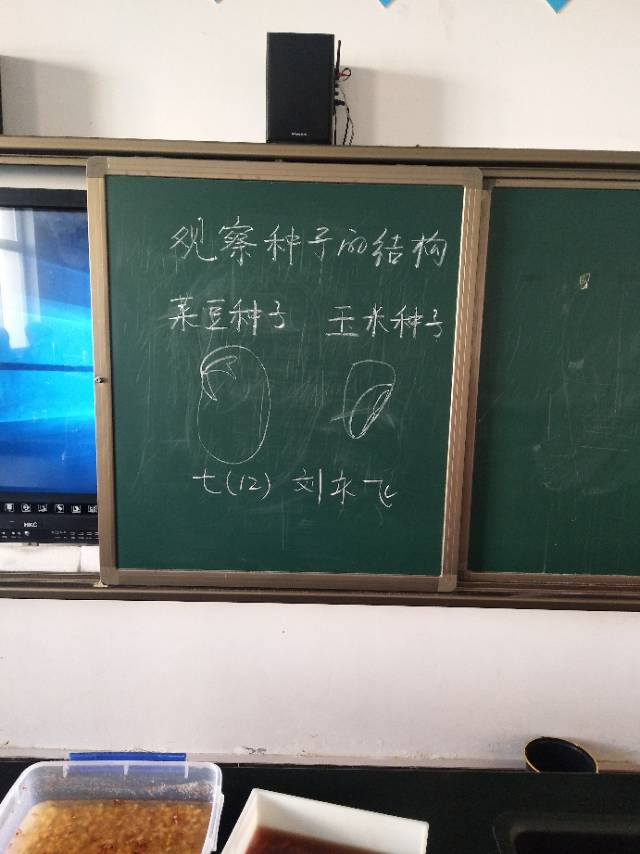 观察种子的结构
菜豆种子 玉米种子
七(12) 刘永飞
HKC